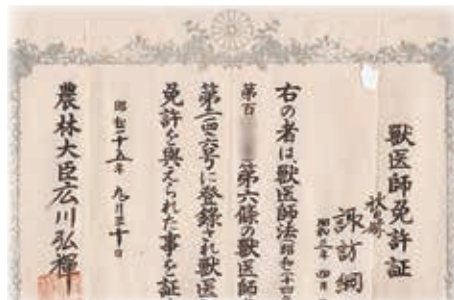 獣医師免許証
秋田縣
諏訪綱
昭和三年四月
右の者は、獣医師法(昭和二十四
第百 第六條の獣医師
第二四六号に登録され獣医
免許を與えられた事を証
昭和二十五年 九月三十日
農林大臣広川弘禪